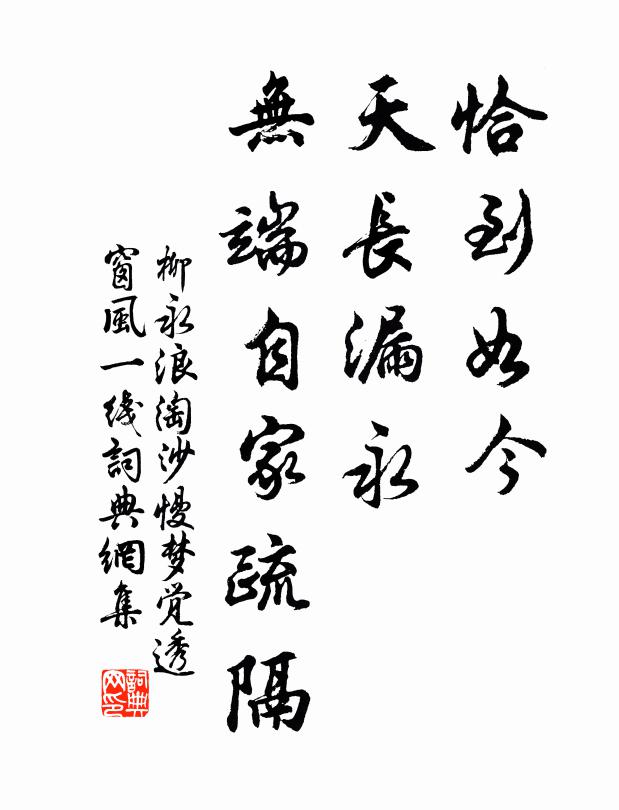 恰到如今
天長漏永
無端自家疏隔
柳永浪淘沙慢梦觉透
窗風一线詞典網集
詞典网印